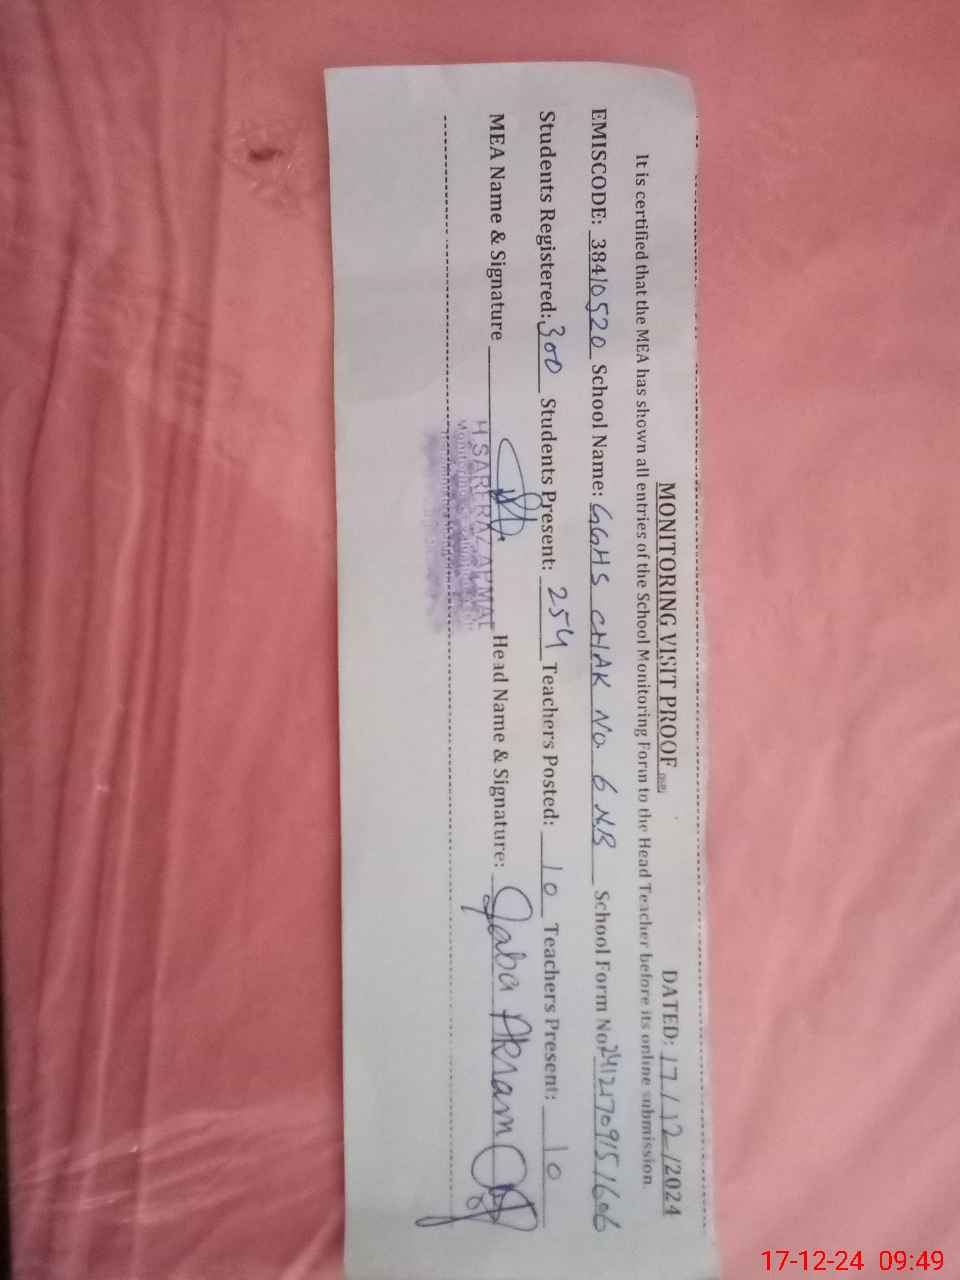 MONITORING VISIT PROOF DATED: 17/12/2024
It is certified that the MEA has shown all entries of the School Monitoring Form to the Head Teacher before its online submission.
EMISCODE: 38410520 School Name: GGHS CHAK No 6 NB School Form No 24121709151606
Students Registered: 300 Students Present: 254 Teachers Posted: 10 Teachers Present: 10
MEA Name & Signature Head Name & Signature: Akram
17-12-24 09:49